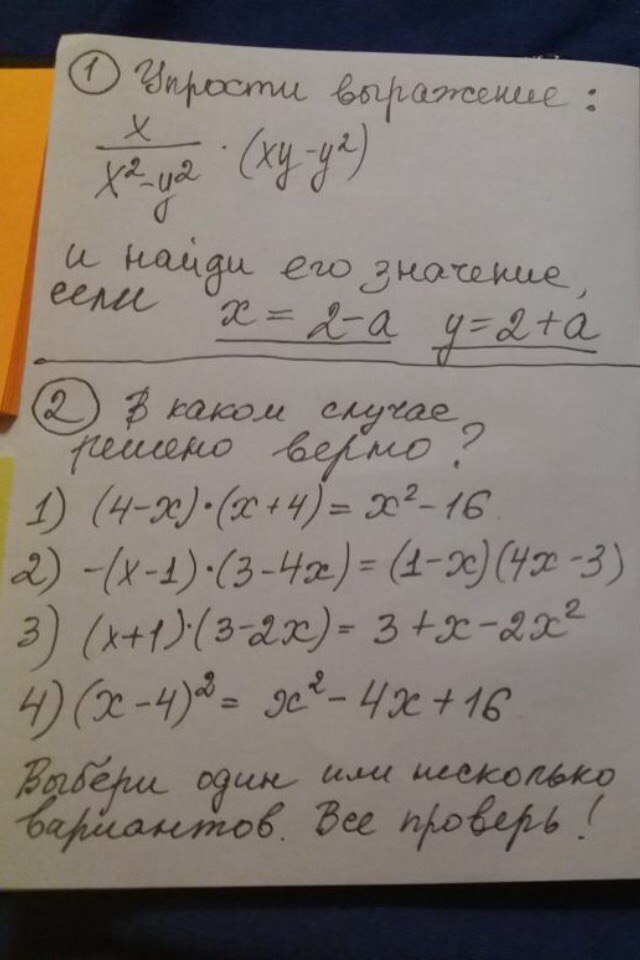 1 Упрости выражение:
x/(x²-y²) · (xy-y²)
и найди его значение,
если x = 2-a y = 2+a
2 В каком случае
решено верно?
1) (4-x)·(x+4) = x²-16
2) -(x-1)·(3-4x) = (1-x)(4x-3)
3) (x+1)·(3-2x) = 3+x-2x²
4) (x-4)² = x²-4x+16
Выбери один или несколько
вариантов. Все проверь!